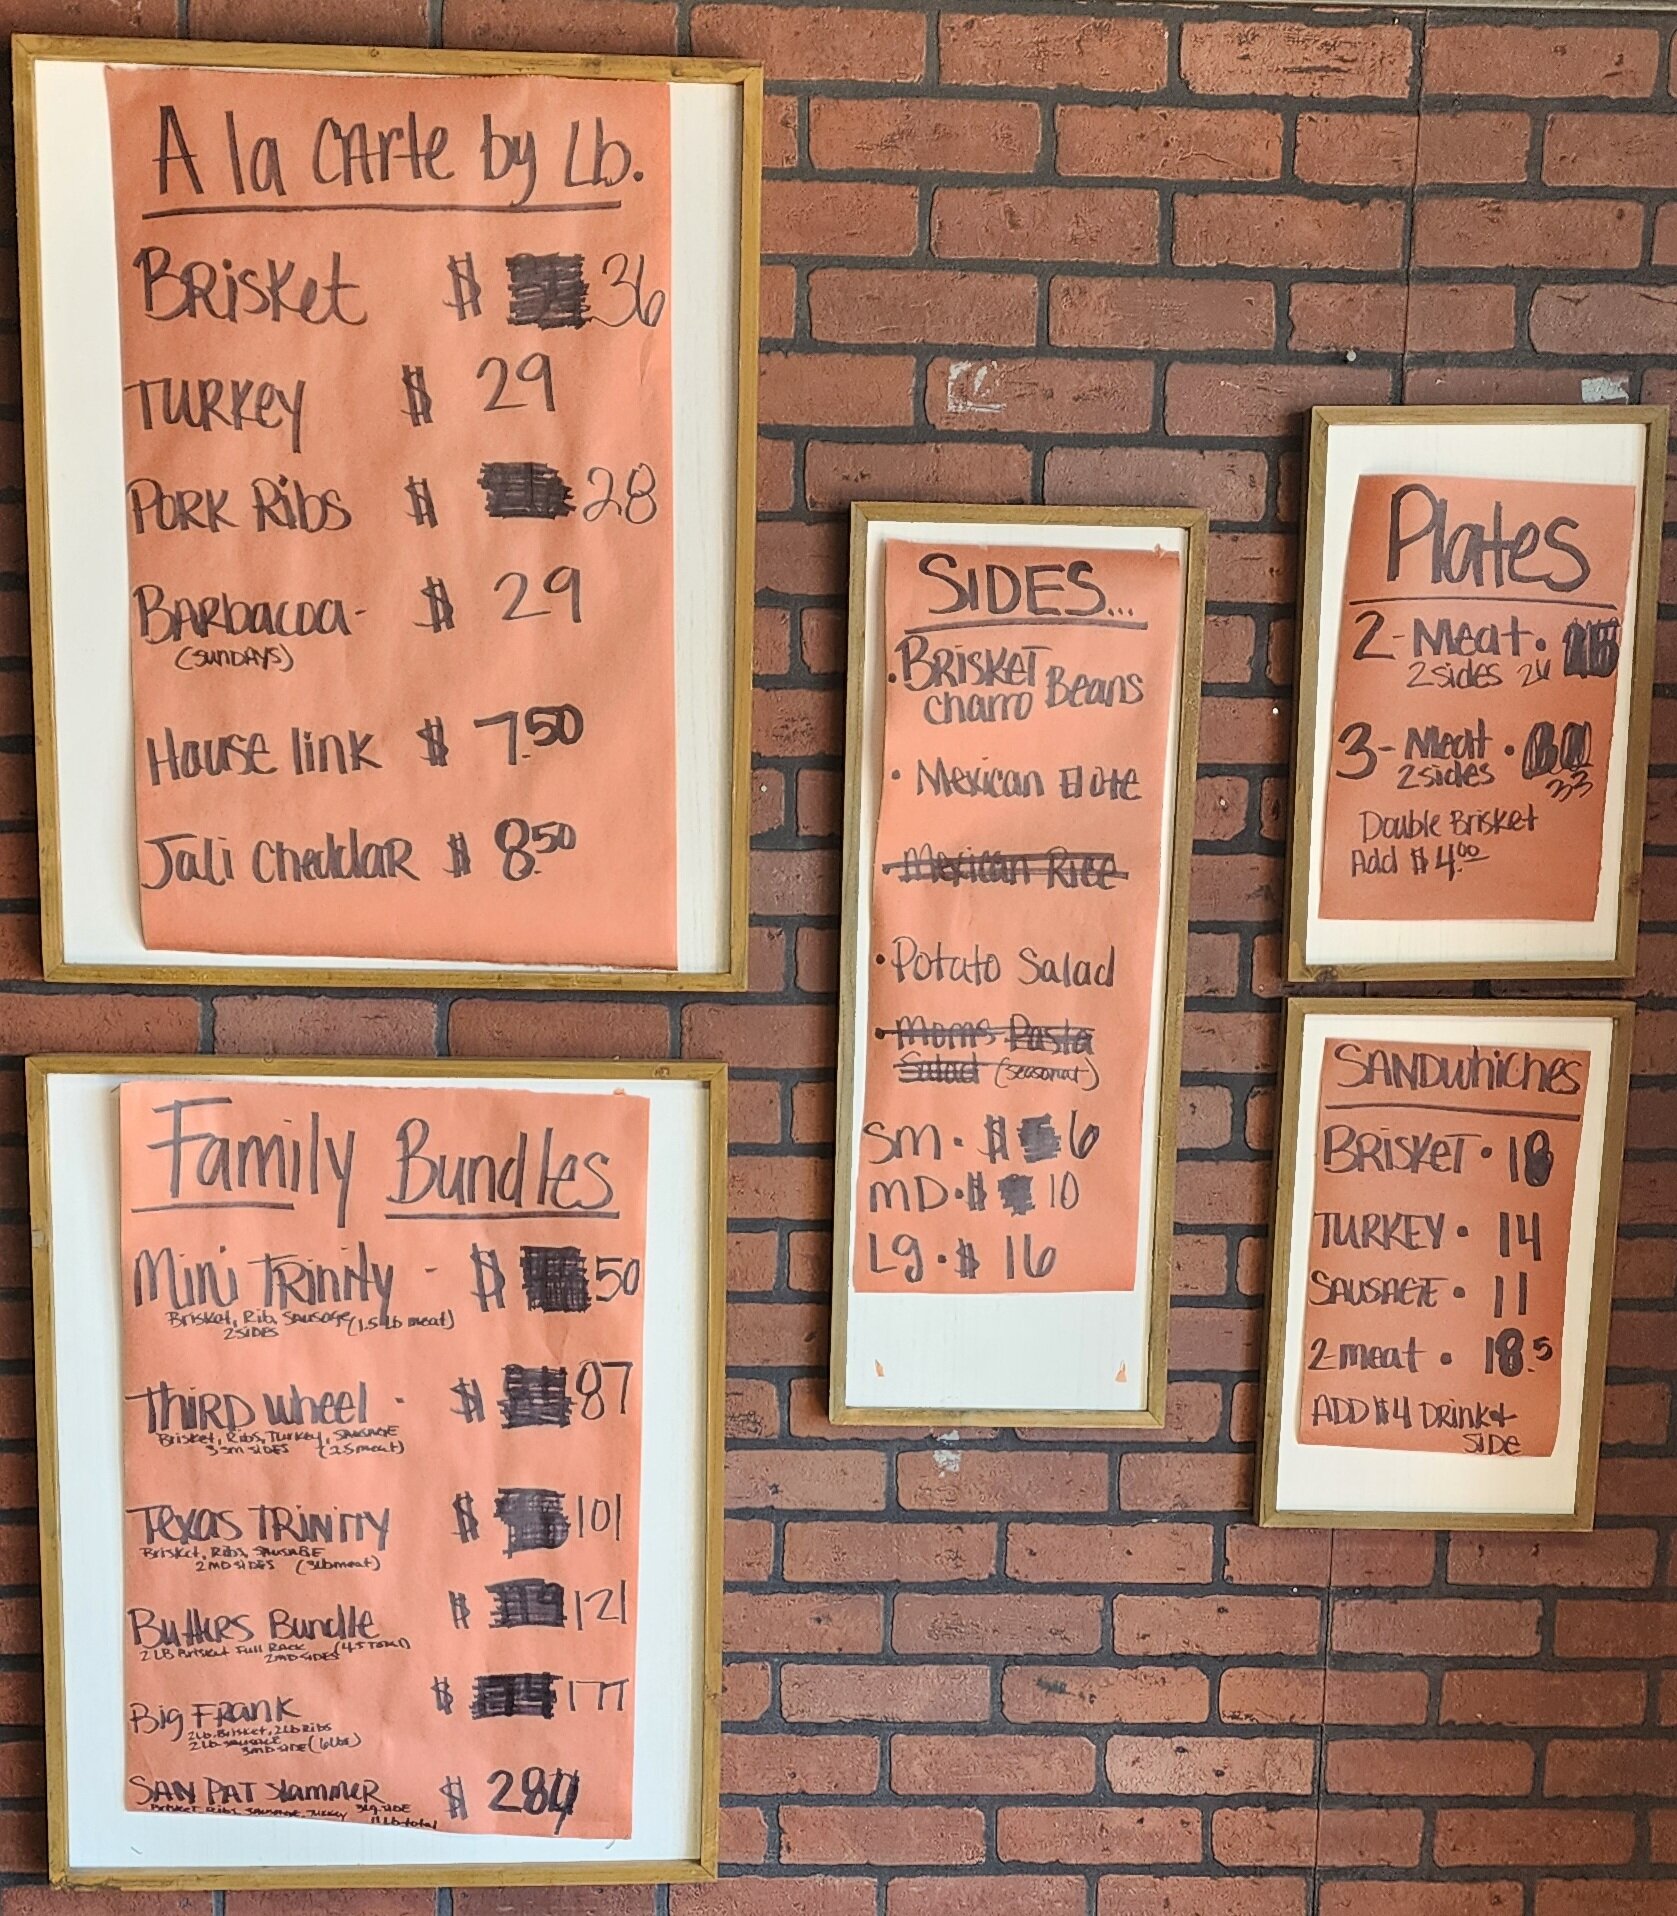 A la CArte by Lb.
BRisket $ 36
TURKEY $ 29
PORK Ribs $ 28
BARbacoa- $ 29
(SUNDAYS)
House link $ 7.50
Jali CheddaR $ 8.50
Family Bundles
Mini TRinity - $ 50
Brisket, Rib, Sausage (1.5 lb meat)
2 SIDES
THIRD wheel - $ 87
Brisket, Ribs, Turkey, SAUSAGE
3 sm SIDES (2.5 meat)
Texas TRINITY $ 101
Brisket, Ribs, SAUSAGE
2 MD SIDES (3lb meat)
Butlers Bundle $ 121
2 LB Brisket Full Rack
2 MD SIDES
Big FRANK $ 177
2Lb. Brisket, 2Lb Ribs
2 Lb sausage
3MD SIDE (6 Lbs)
SAN PAT SlammeR $ 284
Brisket, Ribs, Sausage, Turkey 3Lg. SIDE
11 Lb total
SIDES...
• BRISKET
charro Beans
• Mexican Elote
Mexican Rice
• Potato Salad
• Moms Pasta
Salad (seasonal)
Sm • $ 6
MD • $ 10
Lg • $ 16
Plates
2-Meat •
2 sides 26
3-Meat •
2 sides 33
Double Brisket
Add $4.00
SANDwhiches
BRISKET • 18
TURKEY • 14
SAUSAGE • 11
2-meat • 18.5
ADD $4 DRINK +
SIDE